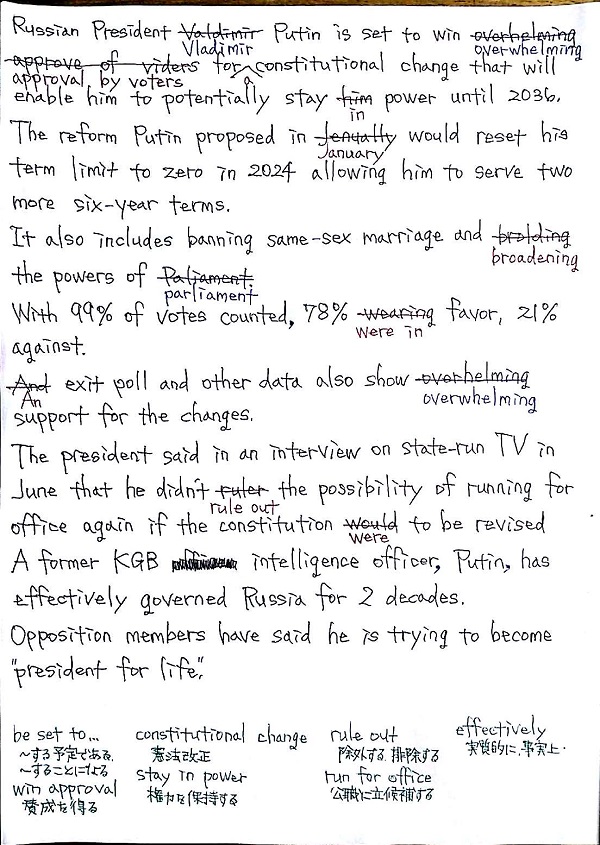 Russian President Valdimir Putin is set to win overhelming
Vladimir overwhelming
approve of viders for constitutional change that will
approval by voters a
enable him to potentially stay him power until 2036.
in
The reform Putin proposed in Jenually would reset his
January
term limit to zero in 2024 allowing him to serve two
more six-year terms.
It also includes banning same-sex marriage and brolding
broadening
the powers of Paliament.
parliament
With 99% of votes counted, 78% wearing favor, 21%
were in
against.
And exit poll and other data also show overhelming
An overwhelming
support for the changes.
The president said in an interview on state-run TV in
June that he didn't ruler the possibility of running for
rule out
office again if the constitution would to be revised
were
A former KGB intelligence officer, Putin, has
effectively governed Russia for 2 decades.
Opposition members have said he is trying to become
"president for life".
be set to... constitutional change rule out effectively
～する予定である、 憲法改正 除外する、排除する 実質的に、事実上・
～することになる stay in power run for office
win approval 権力を保持する 公職に立候補する
賛成を得る